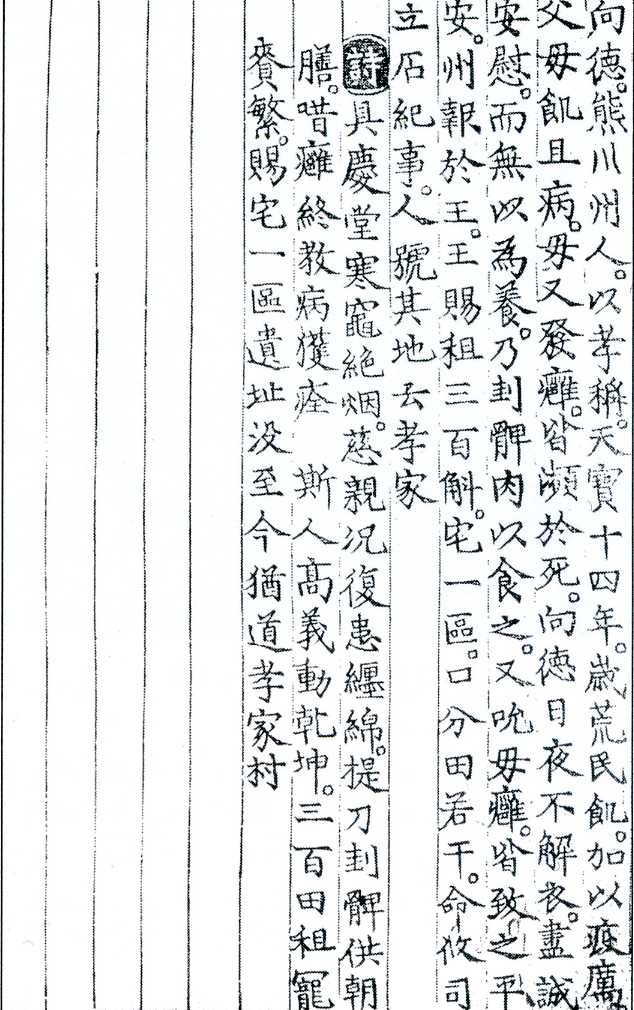 向德。熊川州人。以孝稱。天寶十四年。歲荒民飢。加以疫厲
父母飢且病。母又發癰。皆瀕於死。向德日夜不解衣。盡誠
安慰。而無以為養。乃刲髀肉以食之。又吮母癰。皆致之平
安。州報於王。王賜租三百斛。宅一區。口分田若干。命攸司
立石紀事。人號其地云孝家
詩具慶堂寒竈絶烟。慈親况復患纏綿。提刀刲髀供朝
膳。唶癰終教病獲痊 斯人高義動乾坤。三百田租寵
賚繁。賜宅一區遺址没至今猶道孝家村